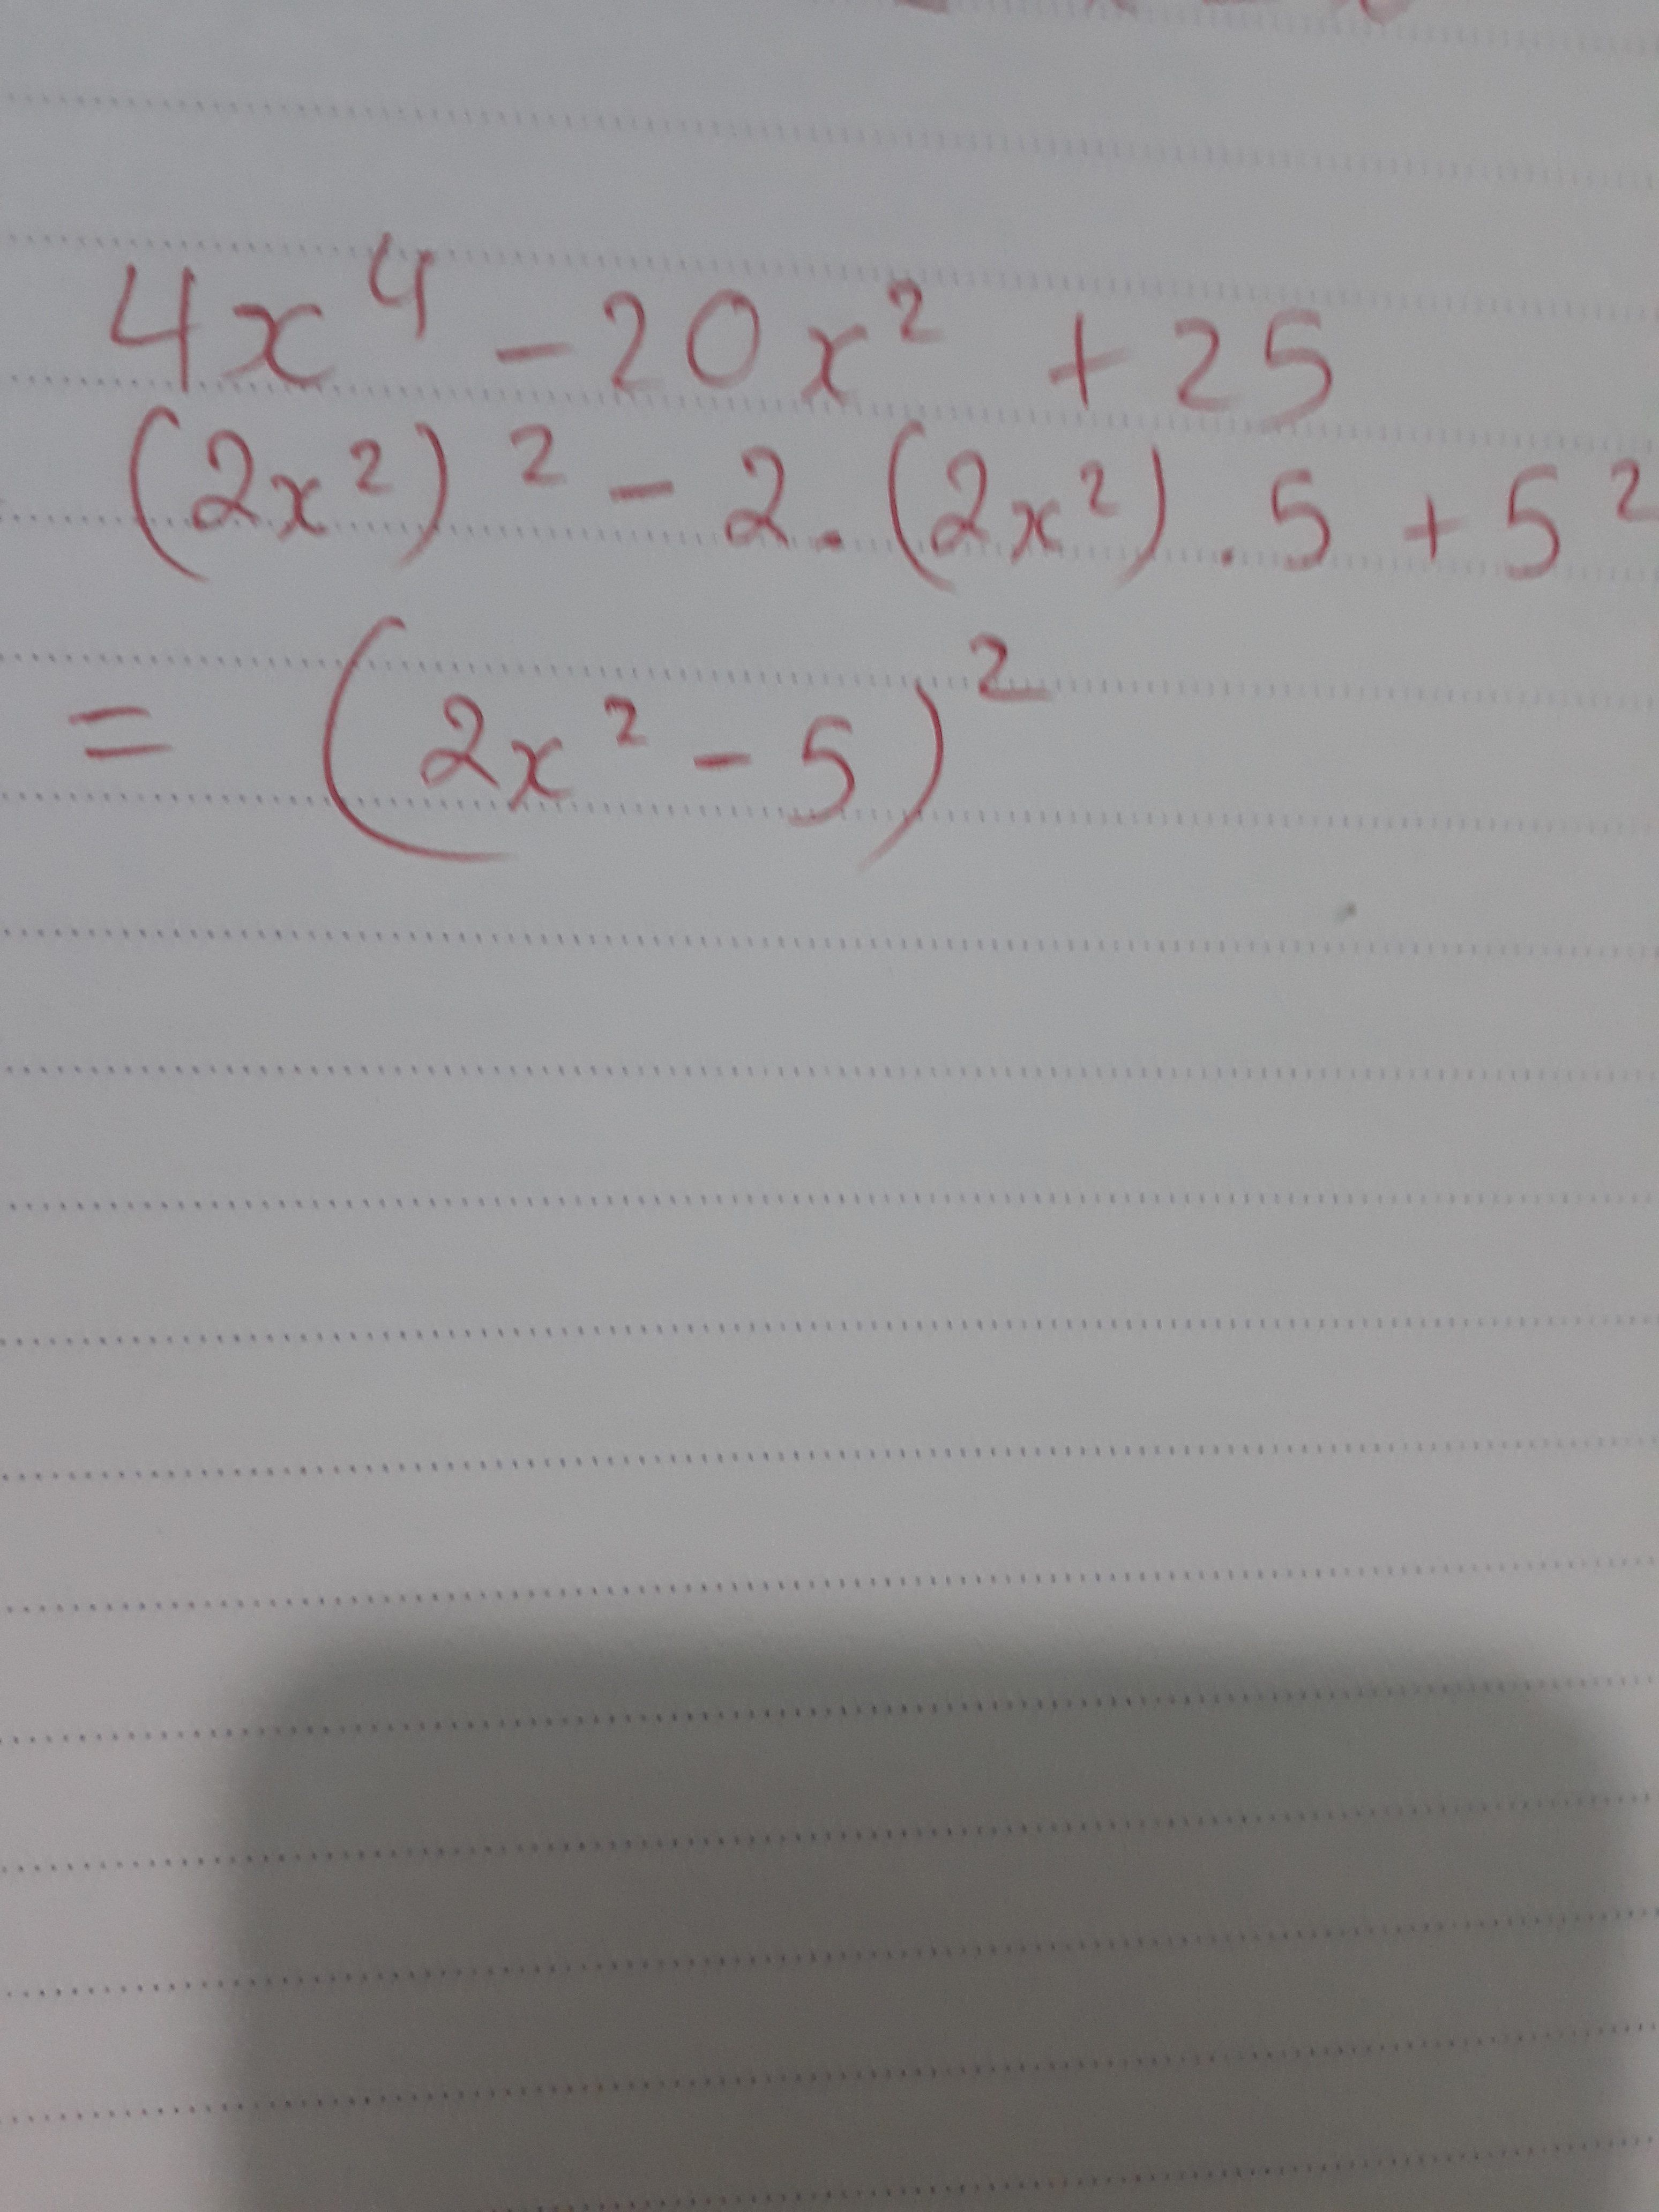 4x⁴ - 20x² + 25
(2x²)² - 2.(2x²).5 + 5²
= (2x² - 5)²